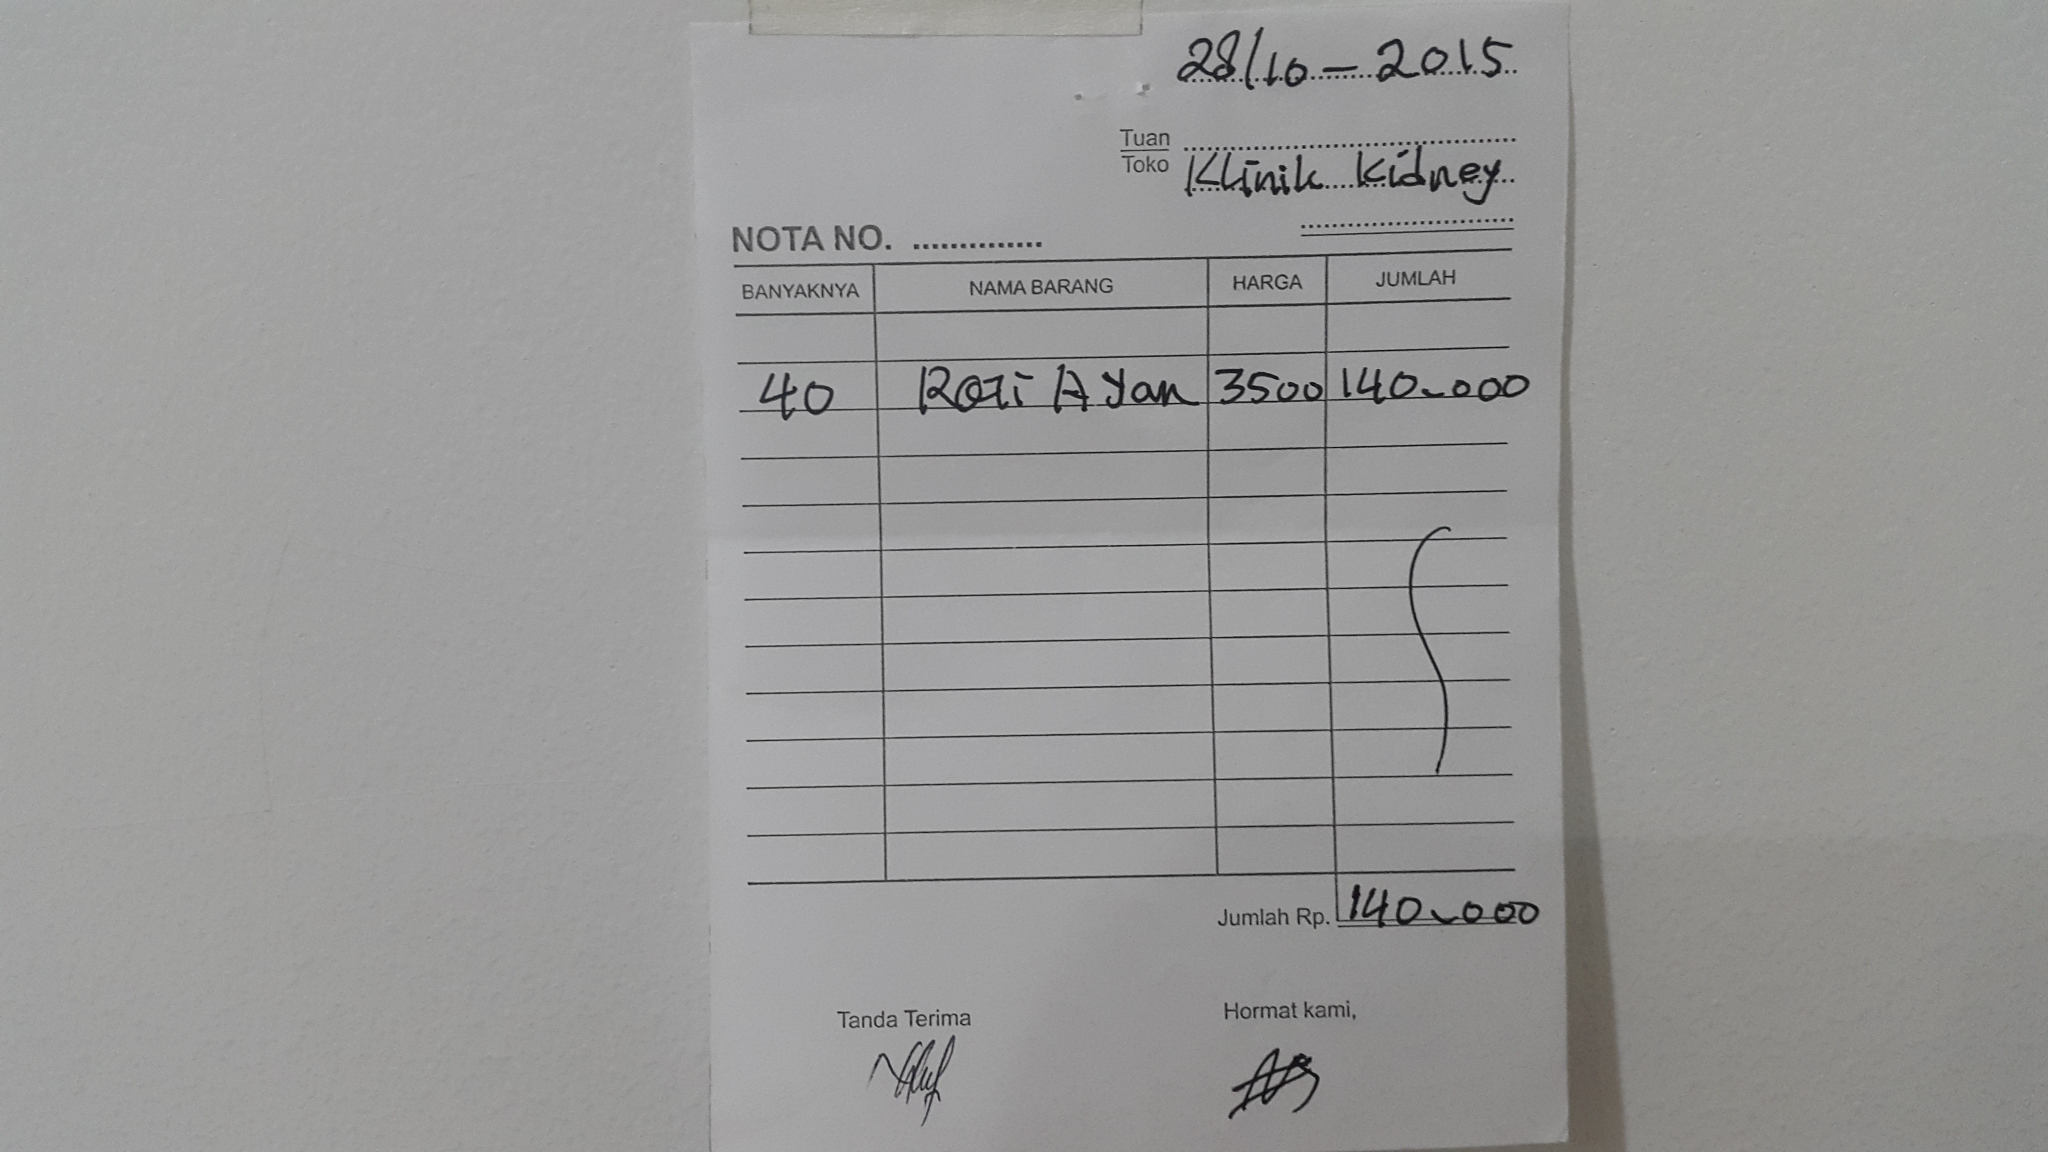 28/10-2015
Tuan
Toko Klinik Kidney
NOTA NO. ...............
BANYAKNYA NAMA BARANG HARGA JUMLAH
40 Roti Ayan 3500 140.000
Jumlah Rp. 140.000
Tanda Terima Hormat kami,